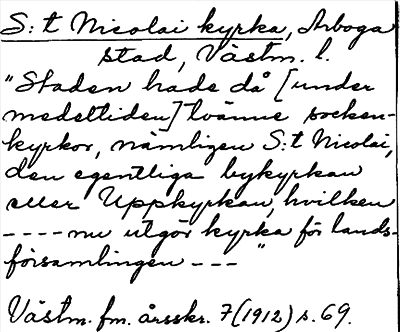 S:t Nicolai kyrka, Arboga
stad, Västm. l.
"Staden hade då [under
medeltiden] tvänne socken-
kyrkor, nämligen S:t Nicolai,
den egentliga bykyrkan
eller Uppkyrkan, hvilken
---- nu utgör kyrka för lands-
församlingen ---"
Västm. fm. årsskr. 7 (1912) s. 69.